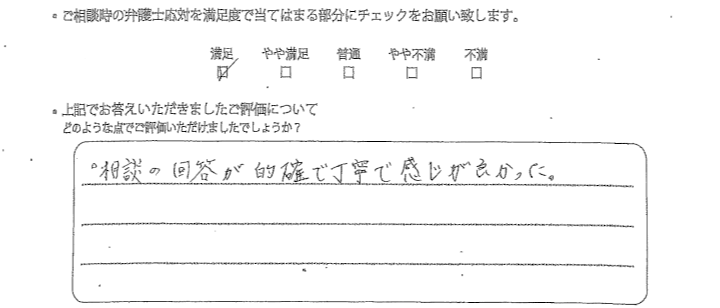 。ご相談時の弁護士応対を満足度で当てはまる部分にチェックをお願い致します。
満足 やや満足 普通 やや不満 不満
☑ □ □ □ □
。上記でお答えいただきましたご評価について
どのような点でご評価いただけましたでしょうか？
。相談の回答が的確で丁寧で感じが良かった。